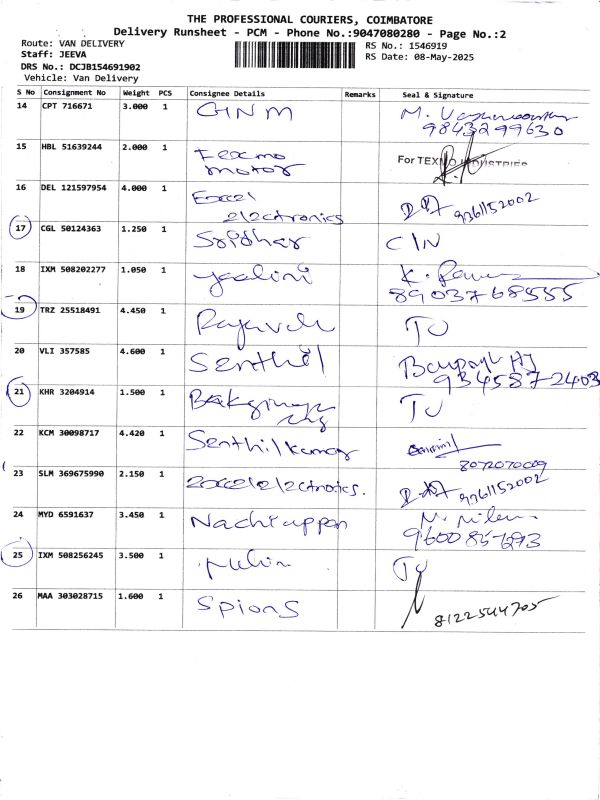 THE PROFESSIONAL COURIERS, COIMBATORE
Delivery Runsheet - PCM - Phone No.:9047080280 - Page No.:2
Route: VAN DELIVERY
Staff: JEEVA
DRS No.: DCJB154691902
Vehicle: Van Delivery
RS No.: 1546919
RS Date: 08-May-2025
S No Consignment No Weight PCS Consignee Details Remarks Seal & Signature
14 CPT 716671 3.000 1 GNM
9843299630
15 HBL 51639244 2.000 1 Texmo motor For TEXMO INDUSTRIES
16 DEL 121597954 4.000 1 Excel electronics 9361152002
17 CGL 50124363 1.250 1 Sridhar C/N
18 IXM 508202277 1.050 1 yaalini K.
8903768555
19 TRZ 25518491 4.450 1 TO
20 VLI 357585 4.600 1 Senthil
9345872403
21 KHR 3204914 1.500 1 TO
22 KCM 30098717 4.420 1 Senthilkumar
8072070009
23 SLM 369675990 2.150 1 excel electronics. 9361152002
24 MYD 6591637 3.450 1 Nachiappan
25 IXM 508256245 3.500 1 TO
26 MAA 303028715 1.600 1 Spions 8122544705